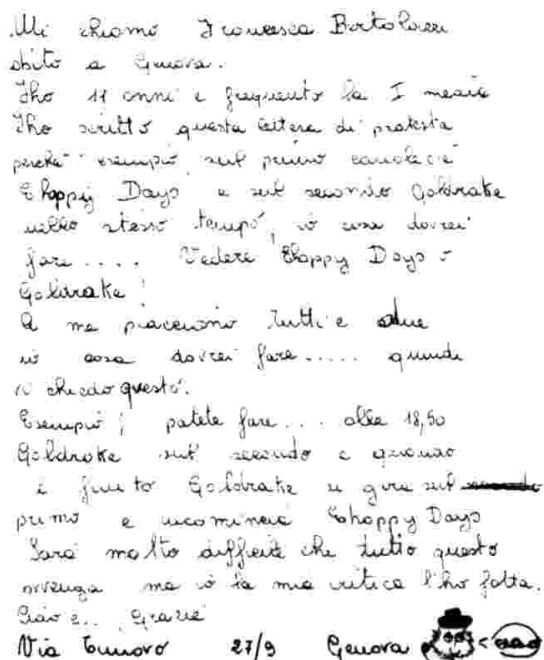 Mi chiamo Francesca Bertolucci
abito a Genova.
Ho 11 anni e frequento la I media
Ho scritto questa lettera di protesta
perché esempio sul primo canale c'é
Happy Days e sul secondo Goldrake
nello stesso tempo, io cosa dovrei
fare.... Vedere Happy Days o
Goldrake!
A me piacciono tutti e due
io cosa dovrei fare..... quindi
vi chiedo questo.
Esempio; potete fare... alle 18,50
Goldrake sul secondo e quando
è finito Goldrake si gira sul
primo e incomincia Happy Days
Sarà molto difficile che tutto questo
avvenga ma io la mia critica l'ho fatta.
Ciao e.. Grazie
Via 27/9 Genova ciao